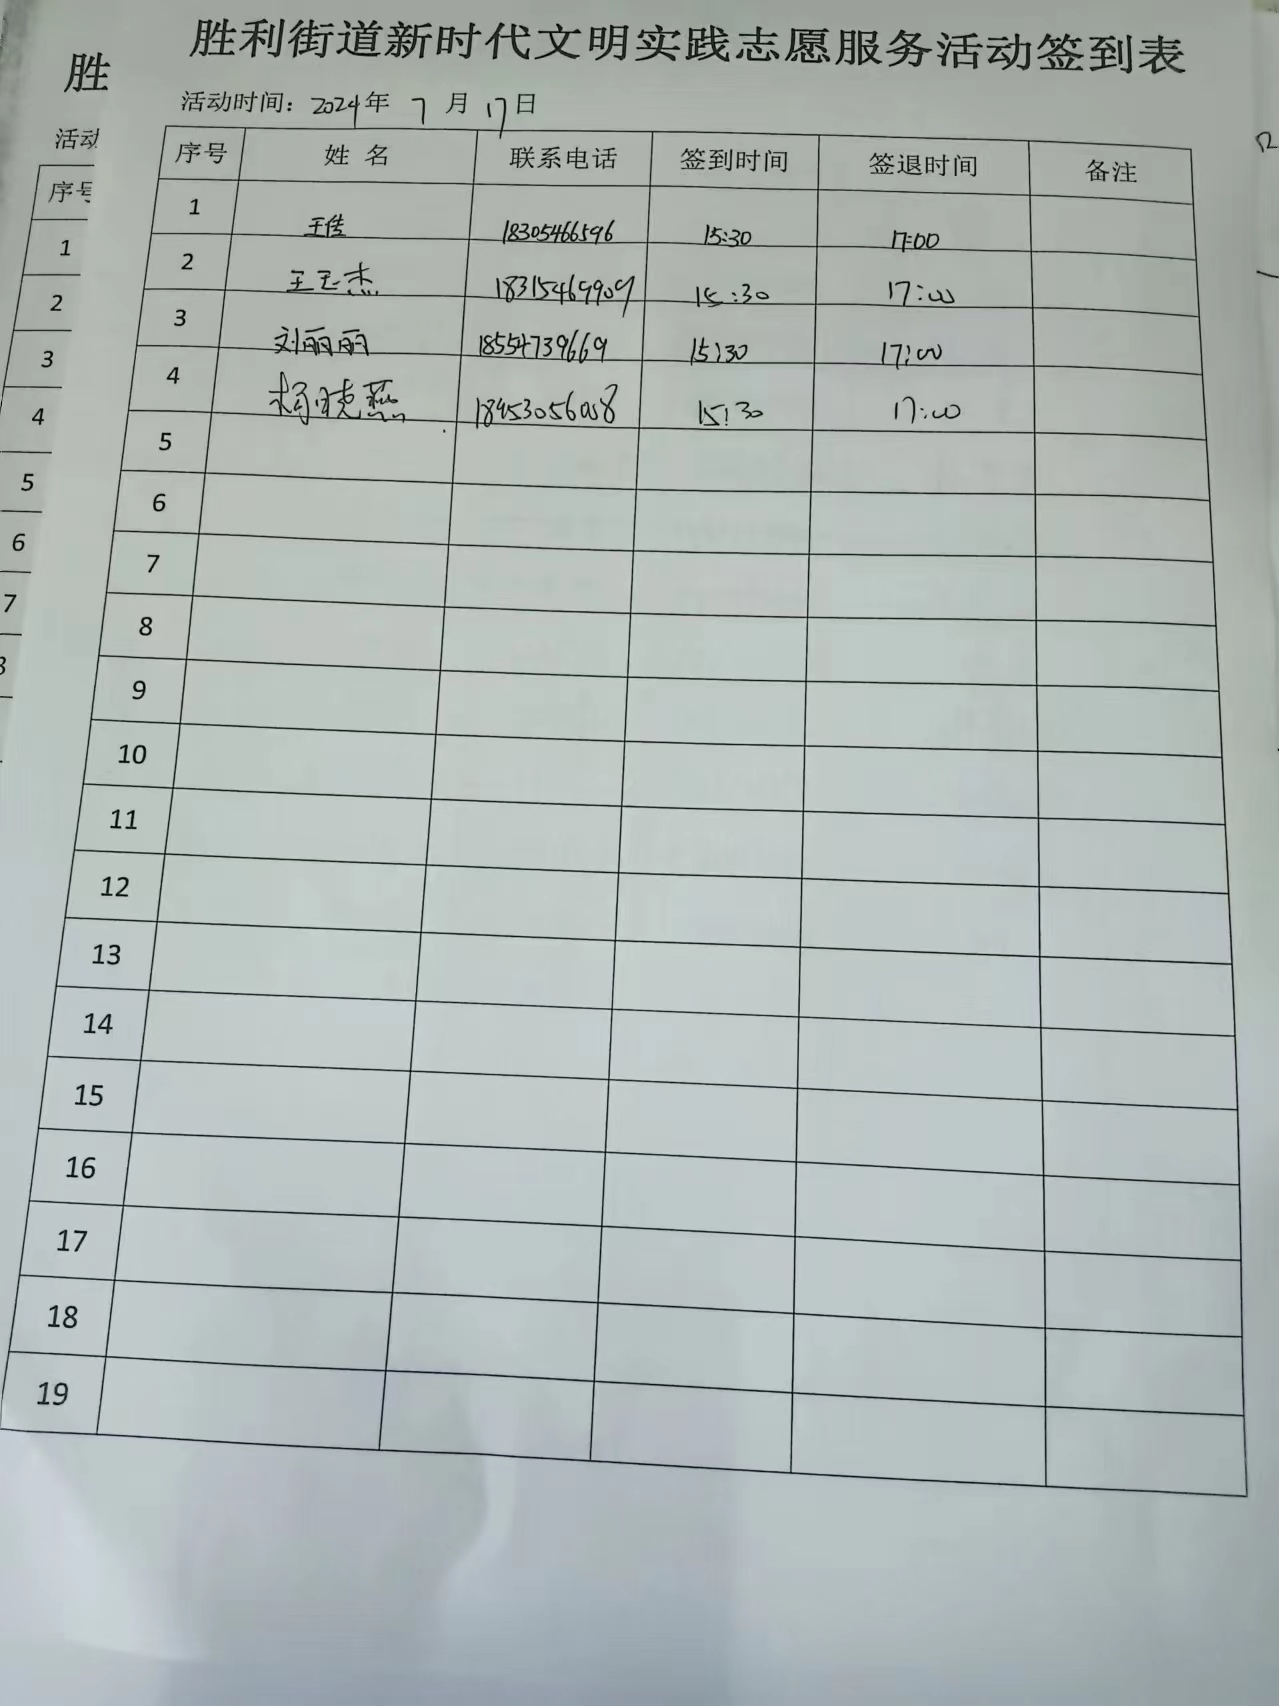 胜利街道新时代文明实践志愿服务活动签到表
活动时间：2024年 7 月 17日
序号 姓 名 联系电话 签到时间 签退时间 备注
1 王佳 18305466596 15:30 17:00
2 王玉杰 18315469909 15:30 17:00
3 刘丽丽 18554739669 15:30 17:00
4 杨晓燕 18953056008 15:30 17:00
5
6
7
8
9
10
11
12
13
14
15
16
17
18
19
胜
活动
序号
1
2
3
4
5
6
7